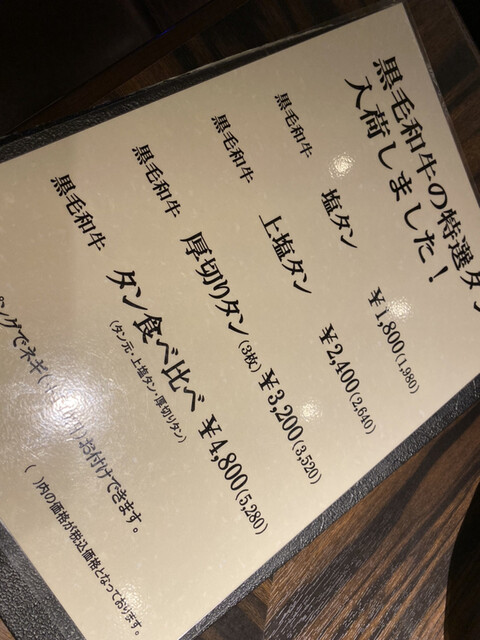 黒毛和牛の特選タン
入荷しました!
黒毛和牛 塩タン ¥1,800(1,980)
黒毛和牛 上塩タン ¥2,400(2,640)
黒毛和牛 厚切りタン(3枚) ¥3,200(3,520)
黒毛和牛 タン食べ比べ ¥4,800(5,280)
(タン元・上塩タン・厚切りタン)
ピングでネギ お付けできます。
( )内の価格が税込価格となっております。